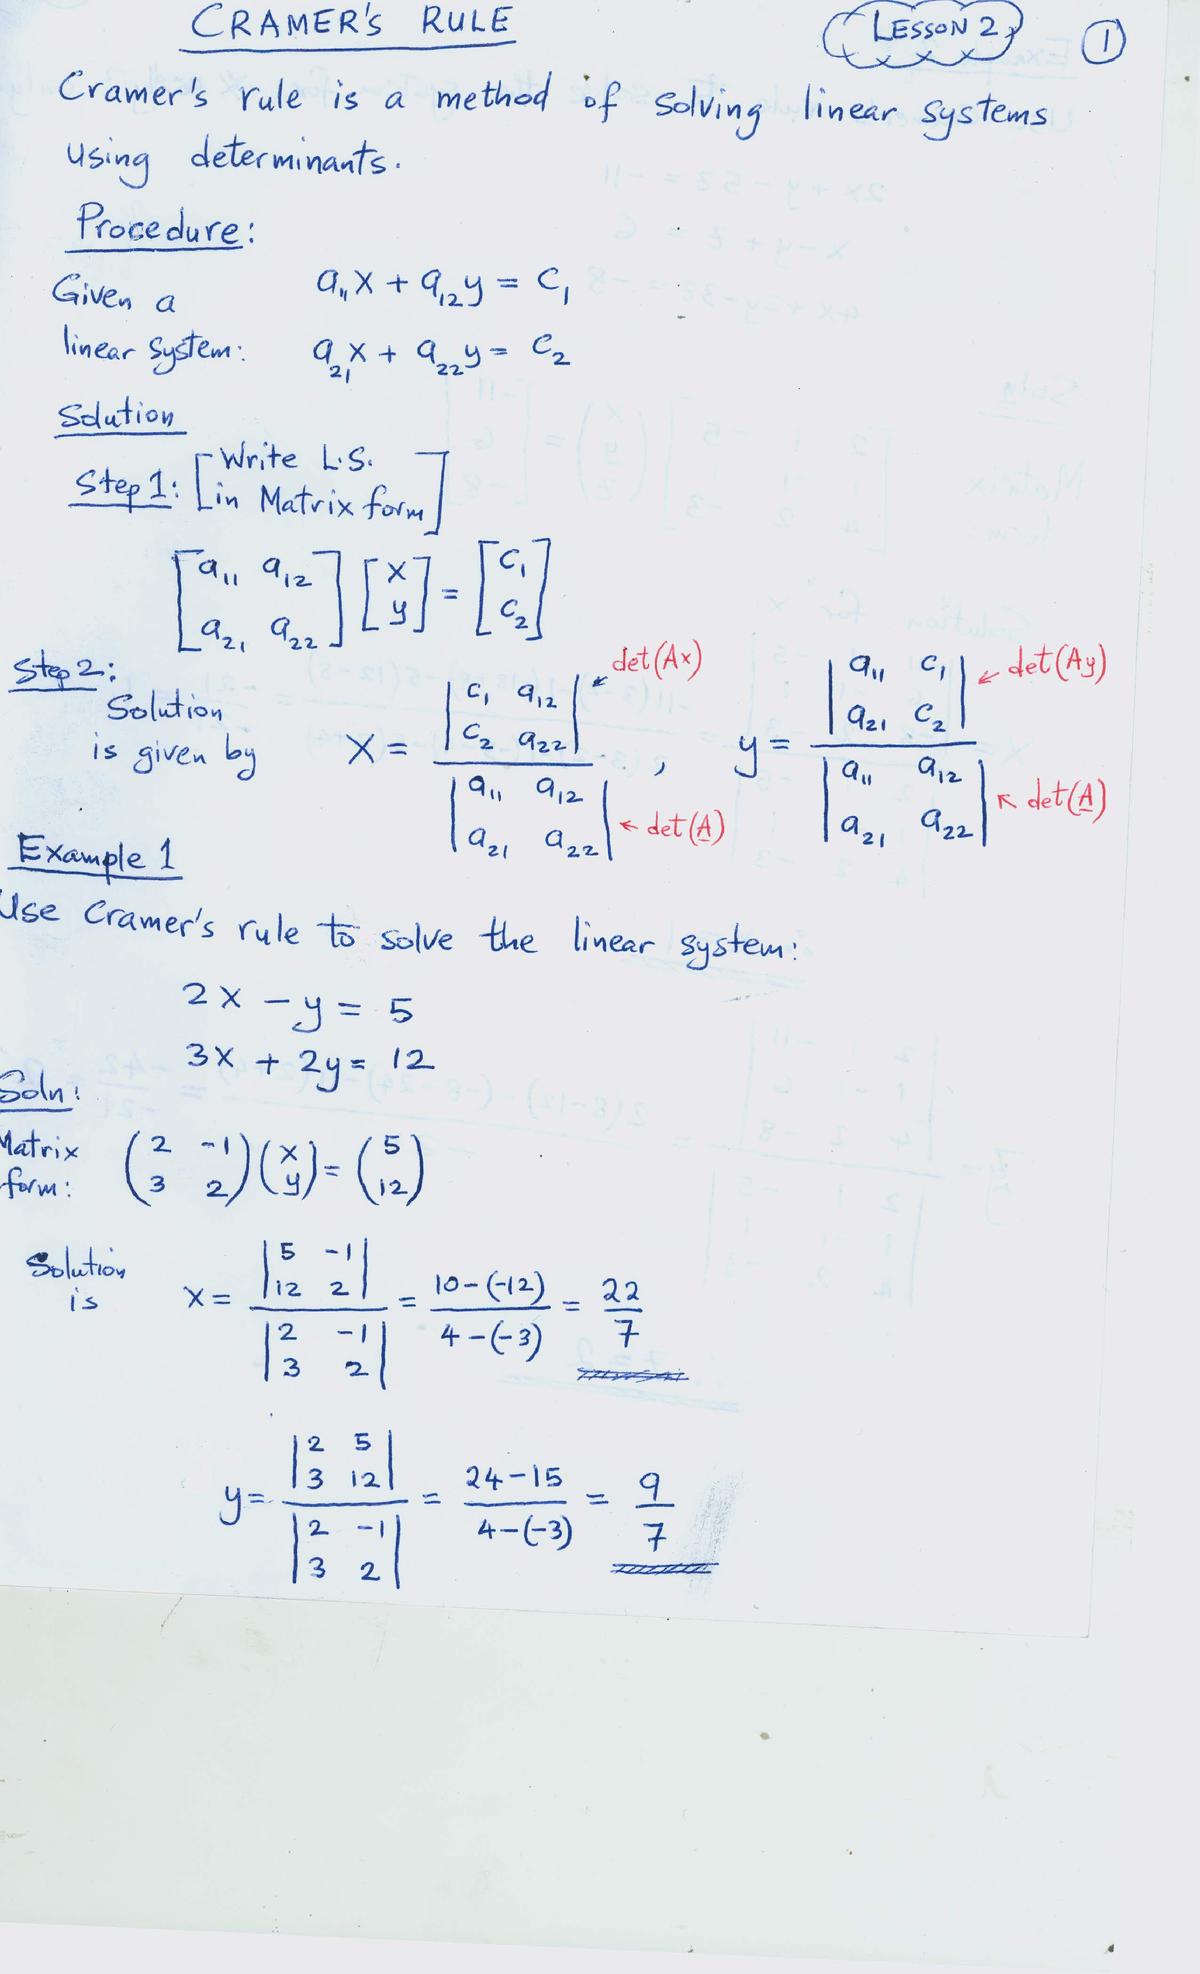 CRAMER'S RULE
LESSON 2
1
Cramer's rule is a method of solving linear systems
using determinants.
Procedure:
Given a linear system:
a₁₁x + a₁₂y = c₁
a₂₁x + a₂₂y = c₂
Solution
Step 1: [Write L.S.
in Matrix form]
[a₁₁ a₁₂] [x] = [c₁]
[a₂₁ a₂₂] [y] [c₂]
Step 2:
Solution
is given by
x = |c₁ a₁₂| ← det(Ax)
|c₂ a₂₂|
|a₁₁ a₁₂|
|a₂₁ a₂₂| ← det(A)
,
y = |a₁₁ c₁| ← det(Ay)
|a₂₁ c₂|
|a₁₁ a₁₂|
|a₂₁ a₂₂| ← det(A)
Example 1
Use Cramer's rule to solve the linear system:
2x - y = 5
3x + 2y = 12
Soln:
Matrix
form:
(2 -1) (x) = (5)
(3 2) (y) (12)
Solution
is
x = |5 -1|
|12 2|
|2 -1|
|3 2|
= 10-(-12) = 22
4-(-3) 7
y = |2 5|
|3 12|
|2 -1|
|3 2|
= 24-15 = 9
4-(-3) 7